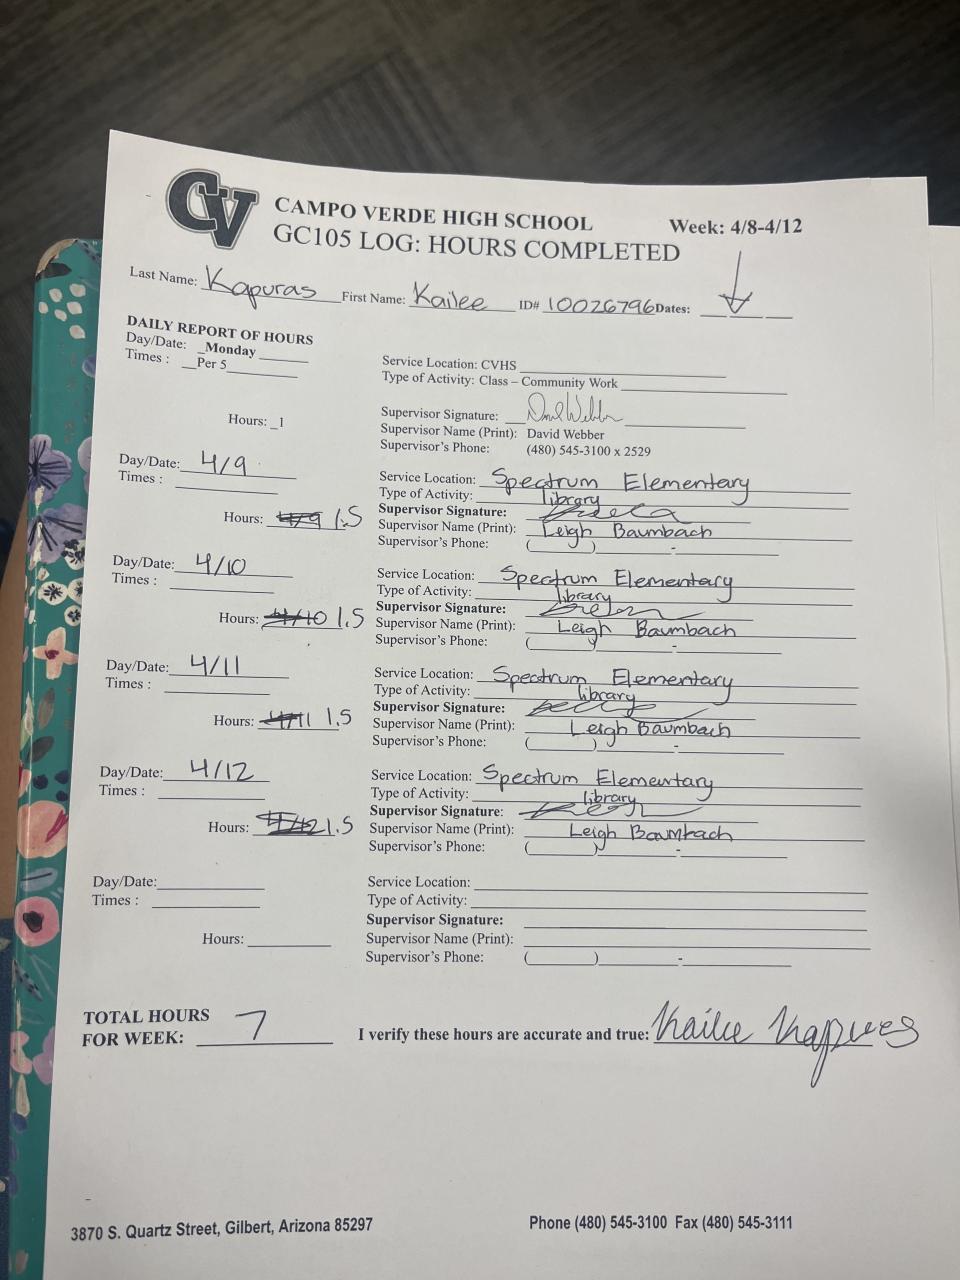 CV
CAMPO VERDE HIGH SCHOOL Week: 4/8-4/12
GC105 LOG: HOURS COMPLETED
Last Name: Kapuras First Name: Kailee ID# 10026796 Dates:
DAILY REPORT OF HOURS
Day/Date: Monday
Times : Per 5
Service Location: CVHS
Type of Activity: Class – Community Work
Hours: 1
Supervisor Signature: David Webber
Supervisor Name (Print): David Webber
Supervisor's Phone: (480) 545-3100 x 2529
Day/Date: 4/9
Times :
Service Location: Spectrum Elementary
Type of Activity: library
Hours: 4/9 1.5
Supervisor Signature:
Supervisor Name (Print): Leigh Baumbach
Supervisor's Phone: ( ) -
Day/Date: 4/10
Times :
Service Location: Spectrum Elementary
Type of Activity: library
Hours: 4/10 1.5
Supervisor Signature:
Supervisor Name (Print): Leigh Baumbach
Supervisor's Phone: ( ) -
Day/Date: 4/11
Times :
Service Location: Spectrum Elementary
Type of Activity: library
Hours: 4/11 1.5
Supervisor Signature:
Supervisor Name (Print): Leigh Baumbach
Supervisor's Phone: ( ) -
Day/Date: 4/12
Times :
Service Location: Spectrum Elementary
Type of Activity: library
Hours: 4/12 1.5
Supervisor Signature:
Supervisor Name (Print): Leigh Baumbach
Supervisor's Phone: ( ) -
Day/Date:
Times :
Service Location:
Type of Activity:
Hours:
Supervisor Signature:
Supervisor Name (Print):
Supervisor's Phone: ( ) -
TOTAL HOURS
FOR WEEK: 7
I verify these hours are accurate and true: Kailee Kapuras
3870 S. Quartz Street, Gilbert, Arizona 85297 Phone (480) 545-3100 Fax (480) 545-3111